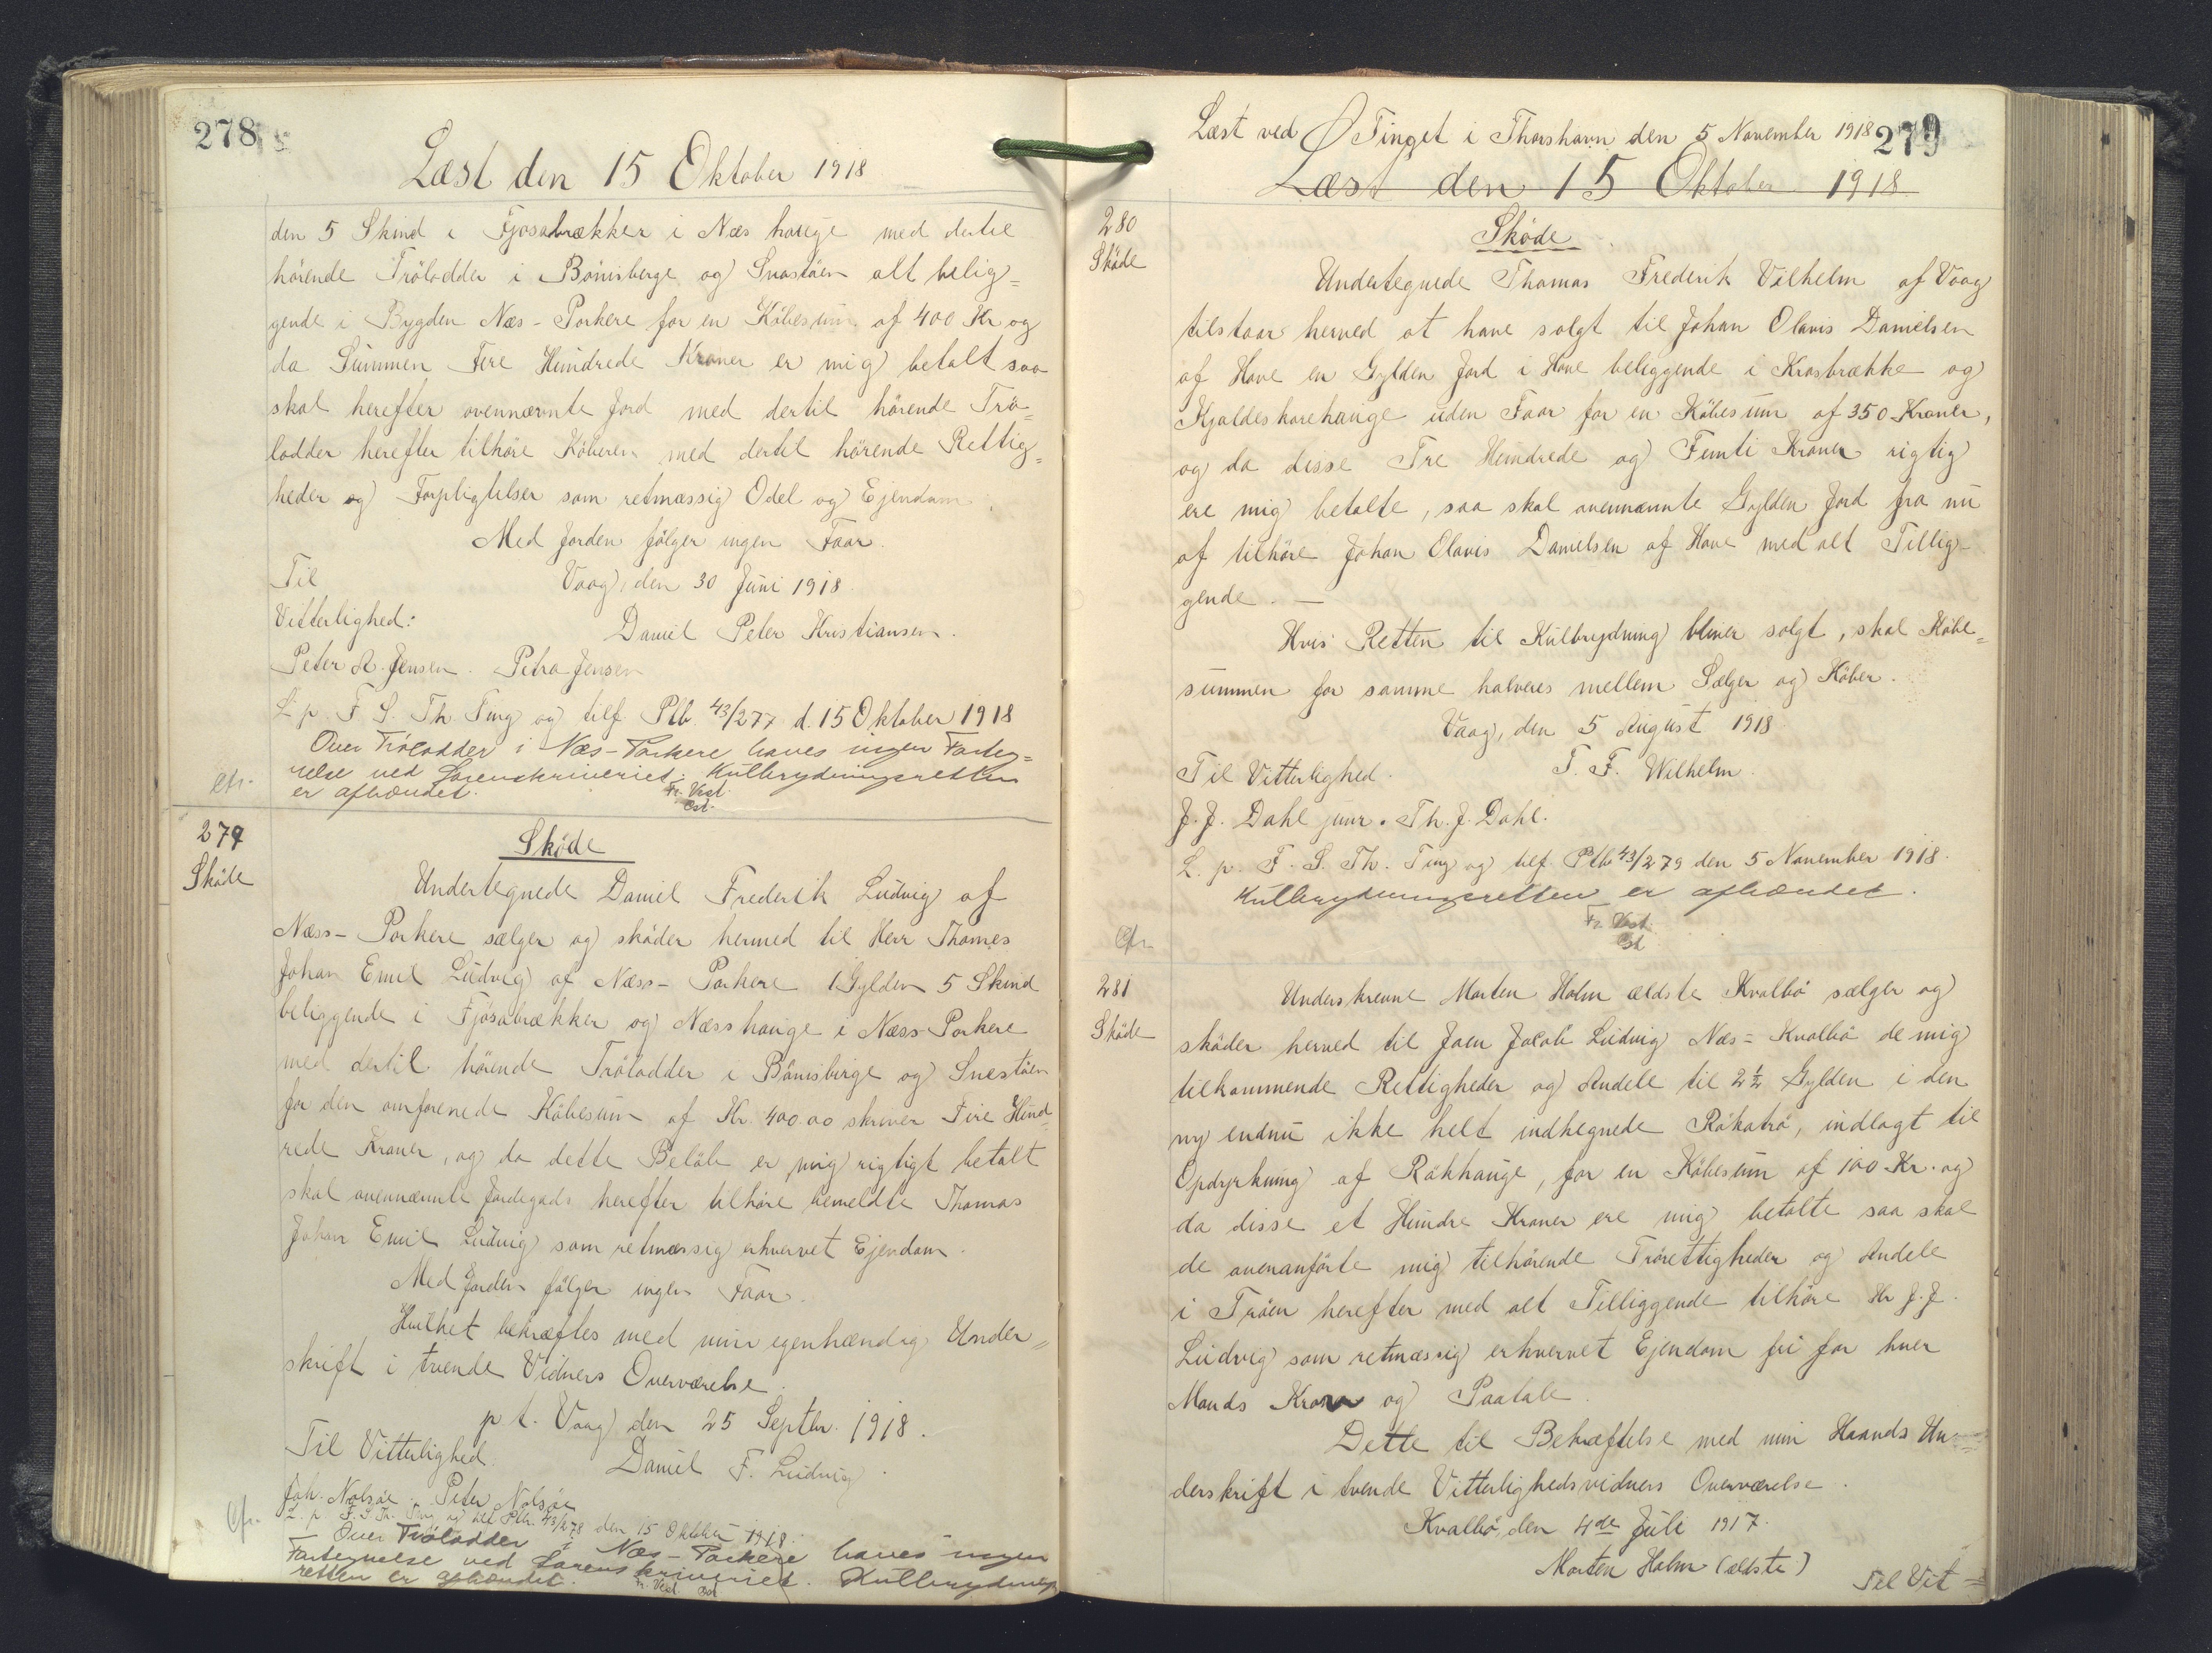 278
Læst den 15 Oktober 1918
den 5 Skind i Fjosabrækker i Næs hauge med dertil
hörende Trölodder i Bönisberge og Snestöen alt belig=
gende i Bygden Næs-Porkere for en Köbesum af 400 Kr og
da Summen Fire Hundrede Kroner er mig betalt saa
skal herefter ovennævnte Jord med dertil hörende Trö=
lodder herefter tilhöre Köberen med dertil hörende Rettig=
heder og Forpligtelser som retmæssig Odel og Ejendom.
Med Jorden fölger ingen Faar.
Til
Vaag, den 30 Juni 1918.
Vitterlighed:
Daniel Peter Kristiansen.
Peter A. Jensen. Petra Jensen
L. p. F. S. Th. Ting og tilf Plb. 43/277 d. 15 Oktober 1918
Over Trölodder i Næs-Porkere haves ingen Forteg=
nelse ved Sorenskriveriet. Kulbrydningsretten
er afhændet.
Cfr.
279
Sköde
Sköde
Undertegnede Daniel Frederik Ludvig af
Næss-Porkere sælger og sköder hermed til Herr Thomas
Johan Emil Ludvig af Næss-Porkere 1 Gylden 5 Skind
beliggende i Fjósabrækker og Næss hauge i Næss-Porkere
med dertil hörende Trölodder i Bönisbirge og Snestöen
for den omforenede Köbesum af Kr. 400.00 skriver Fire Hund=
rede Kroner, og da dette Belöb er mig rigtigt betalt
skal ovennævnte Jordegods herefter tilhöre bemeldte Thomas
Johan Emil Ludvig som retmæssig erhvervet Ejendom.
Med Jorden fölger ingen Faar.
Hvilket bekræftes med min egenhændig Under=
skrift i tvende Vidners Overværelse.
p t. Vaag den 25 Septbr. 1918.
Til Vitterlighed.
Daniel F. Ludvig.
Joh. Nolsöe. Peter Nolsöe
L. p. F. S. Th. Ting og tilf Plb. 43/278 den 15 Oktober 1918.
Cfr.
Over Trölodder i Næs-Porkere haves ingen
Fortegnelse ved Sorenskriveriet. Kulbrydnings
retten er afhændet.
Læst ved Ø Tinget i Thorshavn den 5 November 1918
279
Læst den 15 Oktober 1918
280
Sköde
Sköde
Undertegnede Thomas Frederik Vilhelm af Vaag
tilstaar herved at have solgt til Johan Olavis Danielsen
af Hove en Gylden Jord i Hove beliggende i Krosbrække og
Kjaldeskorehauge uden Faar for en Köbesum af 350 Kroner,
og da disse Tre Hundrede og Femti Kroner rigtig
ere mig betalte, saa skal ovennævnte Gylden Jord fra nu
af tilhöre Johan Olavis Danielsen af Hove med alt Tillig-
gende. —
Hvis Retten til Kulbrydning bliver solgt, skal Köbe=
summen for samme halveres mellem Sælger og Köber.
Vaag, den 5 August 1918.
Til Vitterlighed.
T. F. Wilhelm.
J. J. Dahl junr. Th. J. Dahl.
L. p. F. S. Th. Ting og tilf. Plb 43/279 den 5 November 1918.
Kulbrydningsretten er afhændet.
Cfr
281
Sköde
Underskrevne Morten Holm ældste Kvalbö sælger og
sköder herved til Joen Jacob Ludvig Næs = Kvalbö de mig
tilkommende Rettigheder og Andele til 2½ Gylden i den
ny endnu ikke helt indhegnede Rökatrö, indlagt til
Opdyrkning af Rökhauge, for en Köbesum af 100 Kr. og
da disse et Hundre Kroner ere mig betalte saa skal
de ovenanförte mig tilhörende Trörettigheder og Andele
i Tröen herefter med alt Tilliggende tilhöre Hr J. J.
Ludvig som retmæssig erhvervet Ejendom fri for hver
Mands Krav og Paatale.
Dette til Bekræftelse med min Haands Un=
derskrift i tvende Vitterlighedsvidners Overværelse.
Kvalbö, den 4de Juli 1917.
Morten Holm (ældste)
Til Vit=